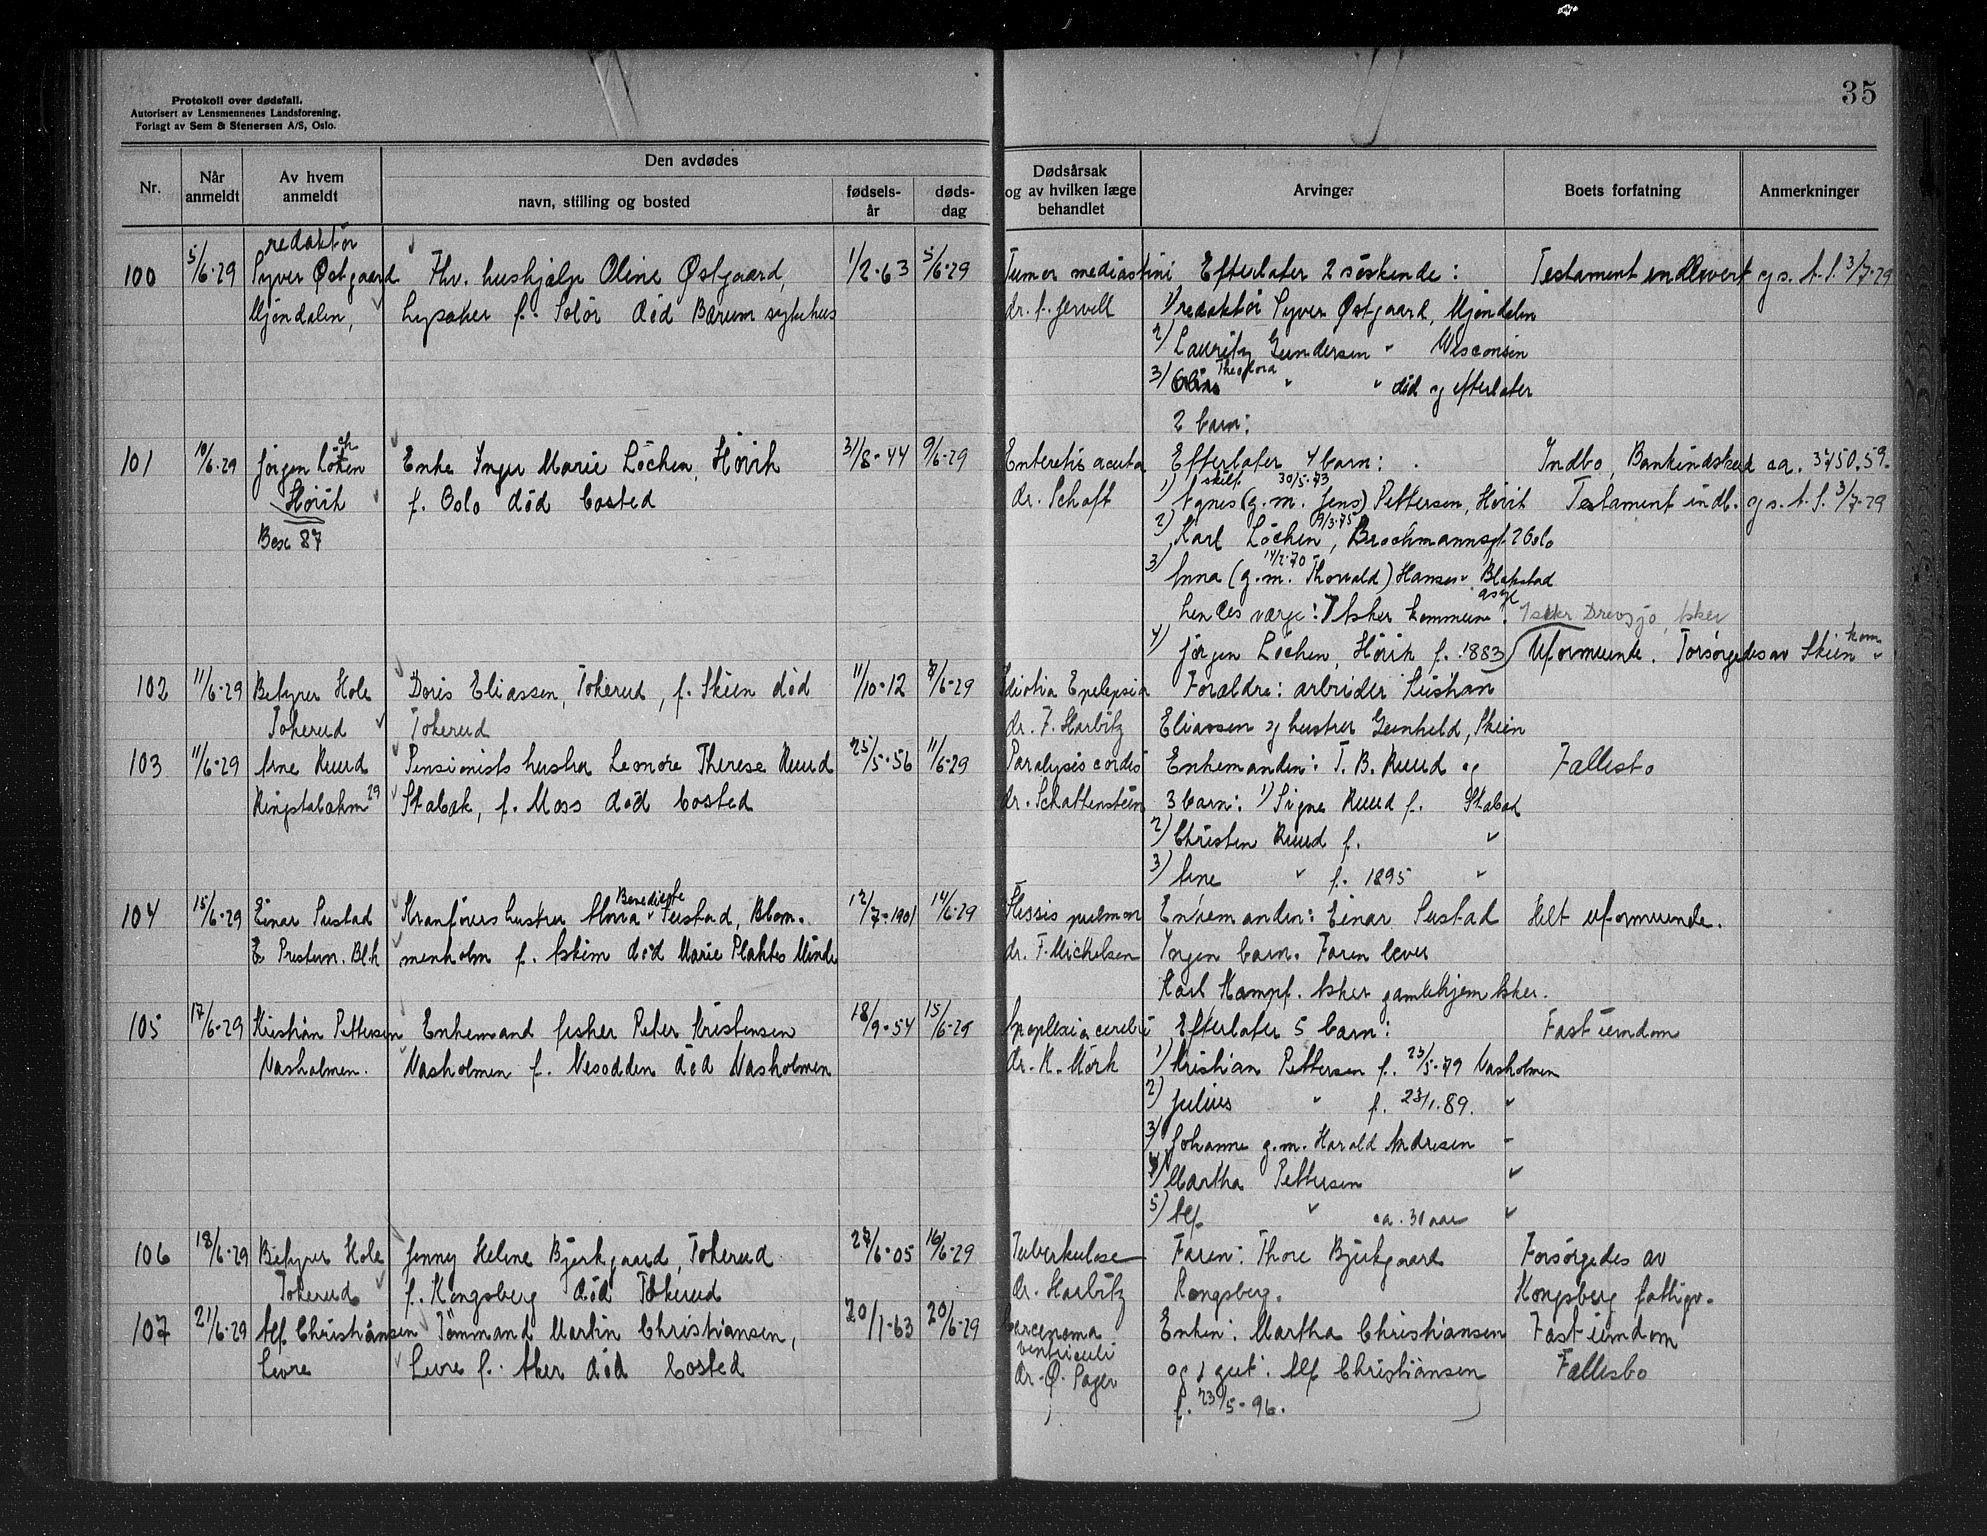 35
Protokoll over dødsfall.
Autorisert av Lensmennenes Landsforening.
Forlagt av Sem & Stenersen A/S, Oslo.
Nr.
Når anmeldt
Av hvem anmeldt
Den avdødes
navn, stilling og bosted
fødsels-år
døds-dag
Dødsårsak og av hvilken læge behandlet
Arvinger
Boets forfatning
Anmerkninger
redaktör
100 5/6-29 Syver Østgaard Fhv. hushjælp Oline Østgaard, 1/2-63 5/6-29 Tumor mediastini Efterlater 2 söskende: Testament indlevert gs. t. f. 3/7-29
Mjöndalen, Lysaker f. Solör död Bærum sykehus dr. f. Jervell 1) redaktör Syver Østgaard, Mjöndalen
2) Lauritz Gundersen " Wisconsin
3) Theodora " " död og efterlater
2 barn:
101 10/6-29 Jörgen Löchen Enke Inger Marie Löchen, Hövik 31/8-44 9/6-29 Enteritis acuta Efterlater 4 barn: Indbo, Bankindskud ca. 3750.59.
Hövik f. Oslo död bosted dr. Schaft 1) Agnes (skilt g.m. Jens) 30/5-73 Pettersen, Hövik Testament indl. gs. t. f. 3/7-29
Box 87 2) Karl Löchen, 9/3-75 Brochmannsgt. 2 Oslo
3) Anna (g.m. Thorvald) 14/2-70 Hansen Blakstad asyl
hendes værge: Asker kommune. Drevsjö, Asker
4) Jörgen Löchen, Hövik f. 1883
102 11/6-29 Bestyrer Hole Doris Eliassen, Tokerud, f. Skien död 11/10-12 7/6-29 Idiotia Epelepsia Forældre: arbeider Kristian Uformuende. Forsörgedes av Skien kom.
Tokerud Tokerud dr. F. Harbitz Eliassen og hustru Gunhild, Skien
103 11/6-29 Arne Ruud Pensionists hustru Leonore Therese Ruud 25/5-56 11/6-29 Paralysis cordis Enkemanden: T. B. Ruud og Fællesbo
Ringstabækvn 29 Stabæk, f. Moss död bosted dr. Schattenstein 3 barn: 1) Signe Ruud f. Stabæk
2) Christen Ruud f. "
3) Arne " f. 1895 "
104 15/6-29 Einar Sustad Kranförers hustru Anna Benedicte Sustad, Blom- 12/7-1901 14/6-29 Ftissis pulmon Enkemanden: Einar Sustad Helt uformuende.
E Prestrun. Blh menholm f. Askim död Marie Plahtes Minde dr. F. Michelsen Ingen barn. Faren lever
Karl Kampf. Asker gamlehjem Asker.
105 17/6-29 Kristian Pettersen Enkemand fisker Peter Kristensen 18/9-54 15/6-29 Apoplexia cerebri Efterlater 5 barn: Fast eiendom
Nasholmen. Nasholmen f. Nesodden död Nasholmen dr. K. Mörk 1) Kristian Pettersen f. 23/5-79 Nasholmen
2) Julius " f. 23/1.89. "
3) Johanne g.m. Harald Andresen "
4) Martha Pettersen "
5) Alf " ca. 30 aar "
106 18/6-29 Bestyrer Hole Jenny Heline Bjerkgaard, Tokerud 27/6-05 16/6-29 Tuberkulose Faren: Thore Bjerkgaard Forsörgedes av
Tokerud f. Kongsberg död Tokerud dr. Harbitz Kongsberg. Kongsberg fattigv.
107 21/6-29 Alf Christiansen Tömmand Martin Christiansen, 20/1-63 20/6-29 Carcinoma ventriculi Enken: Martha Christiansen Fast eiendom
Levre Levre f. Aker död bosted dr. Ø. Sager og 1 gut: Alf Christiansen Fællesbo
f. 23/5-96.